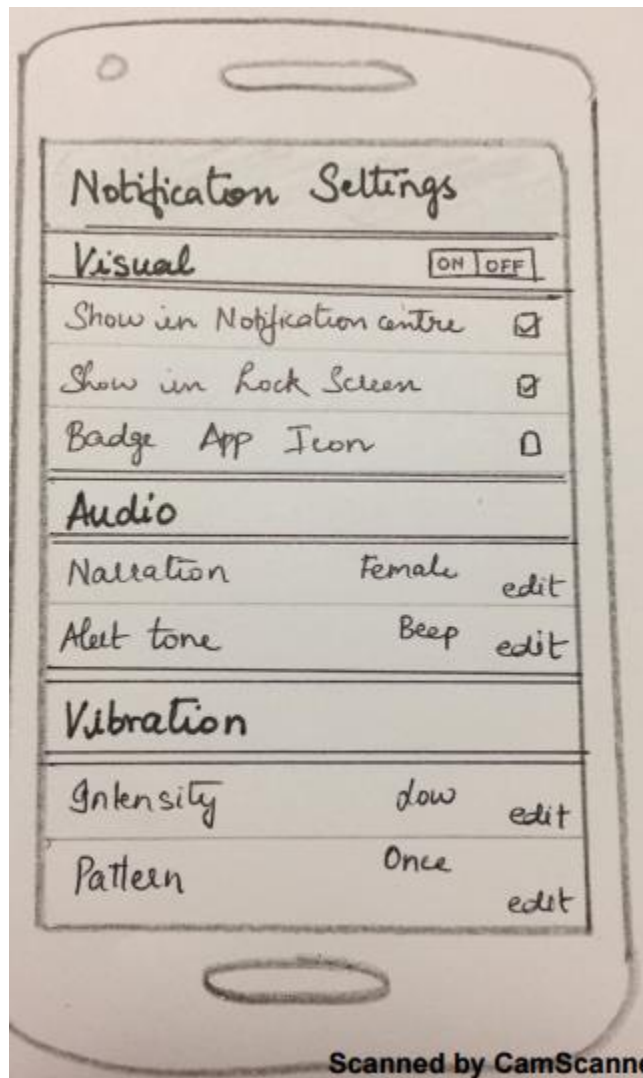 Notification Settings
Visual ON OFF
Show in Notification centre
Show in Lock Screen
Badge App Icon
Audio
Narration Female edit
Alert tone Beep edit
Vibration
Intensity Low edit
Pattern Once edit
Scanned by CamScanne